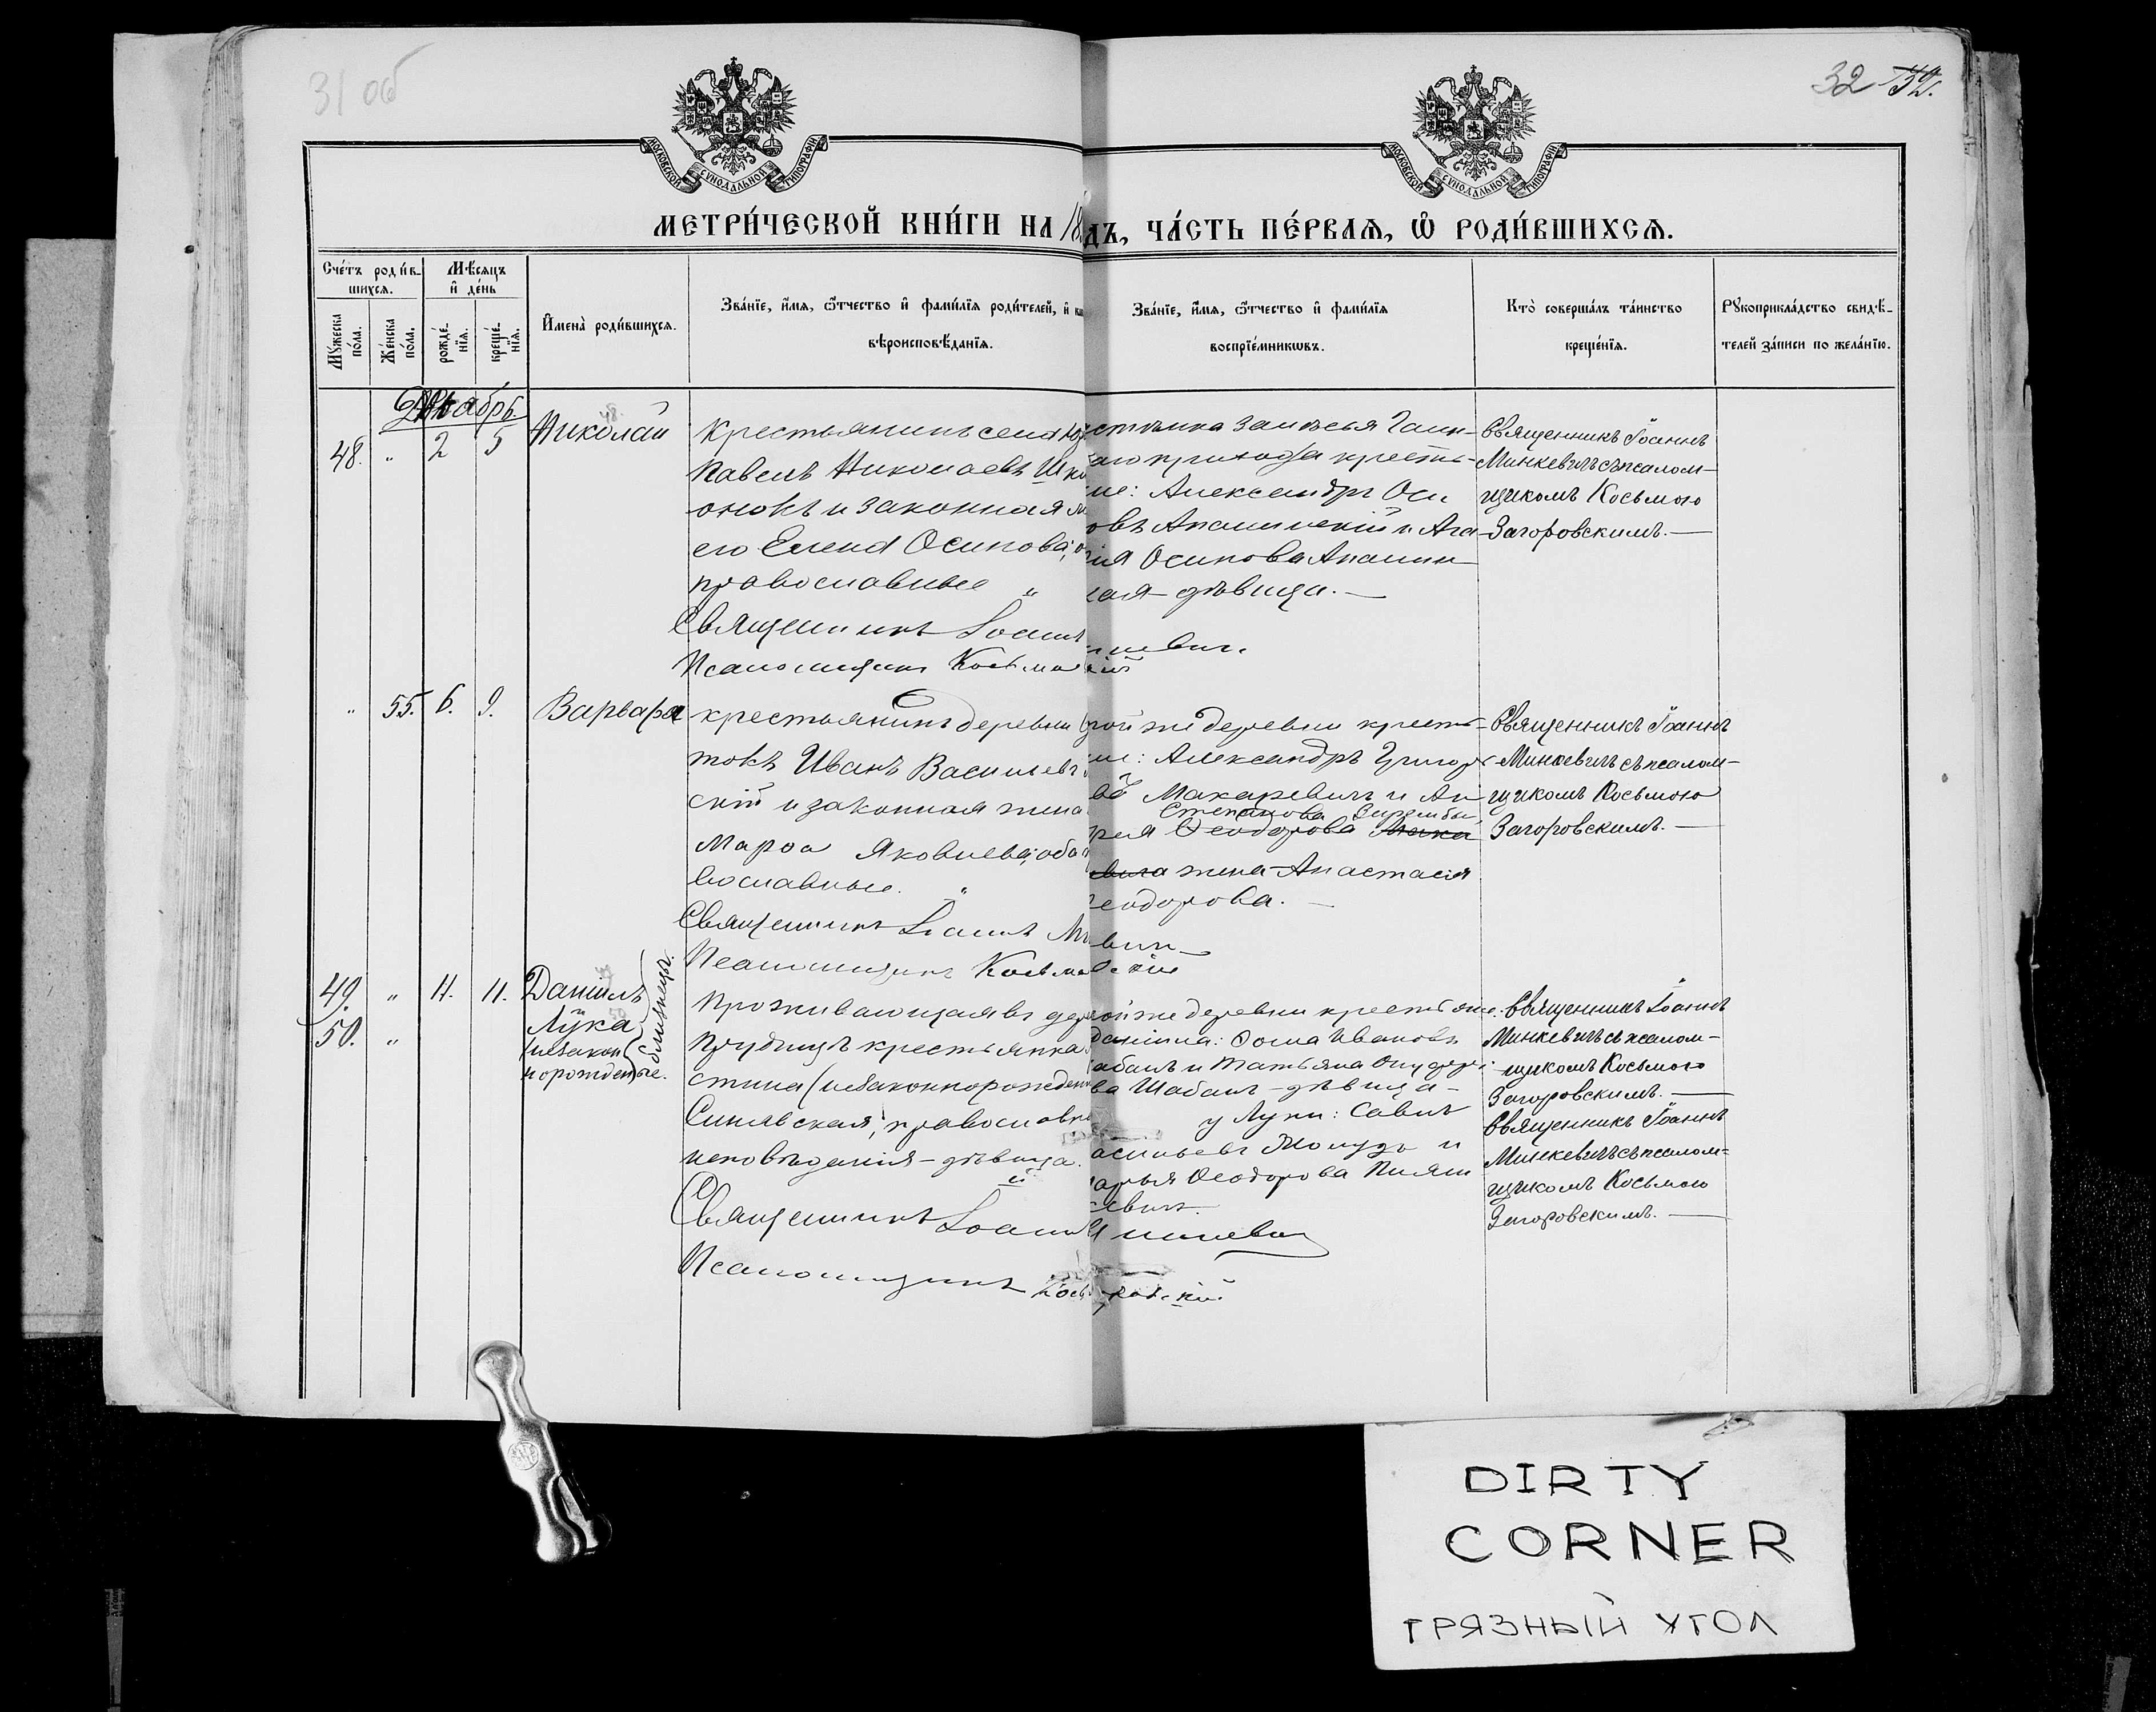 31 об
32 32.
МОСКОВСКОЙ СѴНОДАЛЬНОЙ ТИПОГРАФІИ
МОСКОВСКОЙ СѴНОДАЛЬНОЙ ТИПОГРАФІИ
МЕТРИ́ЧЕСКОЙ КНИ́ГИ НА 18
дъ, ЧА́СТЬ ПЕ́РВАѦ, Ѡ҆ РОДИ́ВШИХСѦ.
Сче́тъ роди́в-
шихсѧ.
Мѣ́сѧцъ
и҆ де́нь
Мꙋ́жеска
по́ла.
Же́нска
по́ла.
рожде́-
нїѧ.
креще́-
нїѧ.
И҆мена̀ роди́вшихсѧ.
Зва́нїе, и҆́мѧ, ѻ҆́тчество и҆ фами́лїѧ роди́телей, и҆
вѣроисповѣ́данїѧ.
Зва́нїе, и҆́мѧ, ѻ҆́тчество и҆ фами́лїѧ
воспрїе́мникѡвъ.
Кто̀ соверша́лъ та́инство
креще́нїѧ.
Рꙋкоприкла́дство свидѣ́-
телей за́писи по жела́нїю.
Декабрь.
48. " 2 5 Николай
48.
Крестьянинъ села
Павелъ Николаевъ Шк
оновъ и законная
его Елена Осипова,
православные "
Священникъ Іоаннъ
Псаломщикъ Косьма
прихода кресть-
не: Александръ Оси
овъ и Ага
ия Осипова
кая дѣвица. —
Священникъ Іоаннъ
Минкевичъ съ псалом-
щикомъ Косьмою
Загоровскимъ. —
" 55. 6. 9. Варвара
крестьянинъ деревни
Иванъ Васильевъ
скій и законная жена
Марѳа Яковлева, оба
вославные. "
Священникъ Іоаннъ Ми
Псаломщикъ Косьма
той же деревни кресть-
не: Александръ Григорь
въ Макаревичъ и Ан
Степанова
Ѳеодорова Мака
евича жена Анастасія
Ѳеодорова. —
Священникъ Іоаннъ
Минкевичъ съ псалом-
щикомъ Косьмою
Загоровскимъ. —
49. " 11. 11. Даніилъ
50. " Лука
(незакон
норожденные.
близнецы.
Проживающая въ дер
Прудищъ крестьянка
стина (незаконнорожден
Синявская, православн
исповѣданія - дѣвица.
Священникъ Іоаннъ
Псаломщикъ Косьм
ой же деревни крестьяне:
Даніила: Ѳома Ивановъ
абанъ и Татьяна
ва Шабанъ - дѣвица -
у Луки: Савва
асильевъ и
арья Ѳеодорова
евичъ.
Священникъ Іоаннъ
Минкевичъ съ псалом-
щикомъ Косьмою
Загоровскимъ. —
Священникъ Іоаннъ
Минкевичъ съ псалом-
щикомъ Косьмою
Загоровскимъ. —
DIRTY
CORNER
ГРЯЗНЫЙ УГОЛ